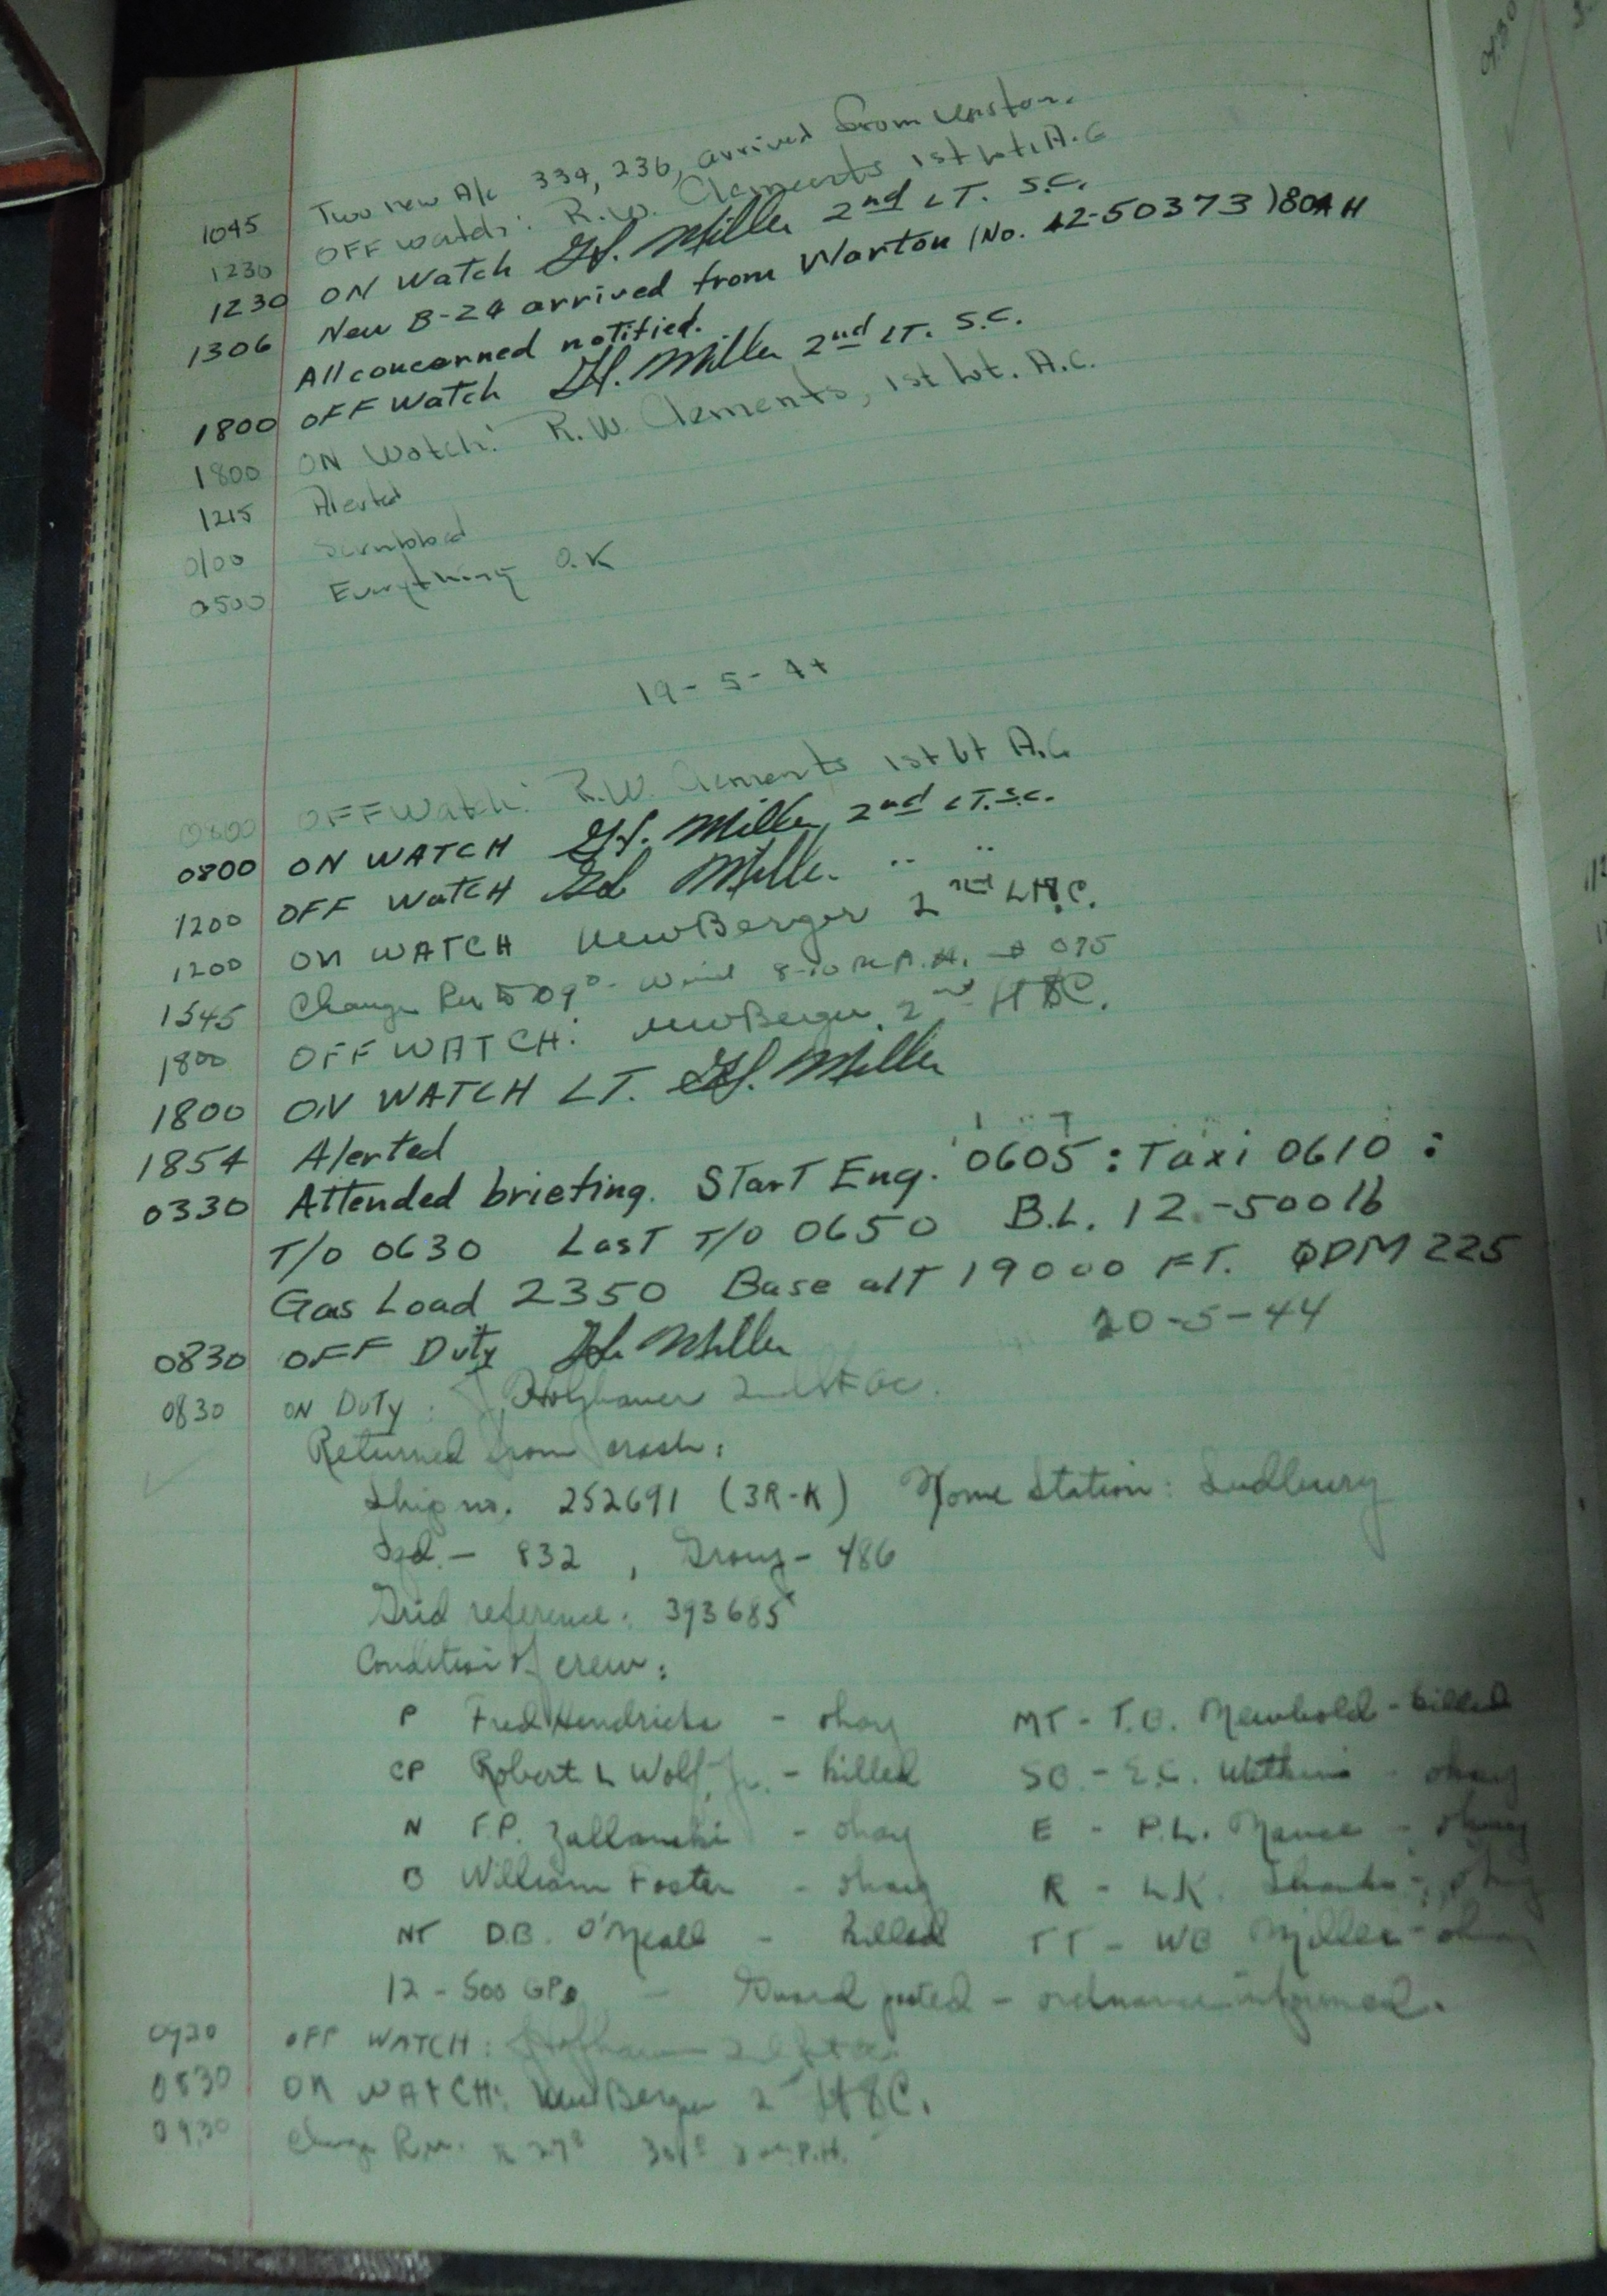 1045 Two new A/c 334, 236, arrived from
1230 OFF watch: R.W. Clements 1st Lt. A.C
1230 ON Watch Miller 2nd LT. S.C.
1306 New B-24 arrived from Warton (No. 42-50373) 80A H
All concerned notified.
1800 OFF Watch Miller 2nd LT. S.C.
1800 ON Watch: R.W. Clements, 1st Lt. A.C.
1215 Alerted
0100 Scrubbed
0500 Everything O.K
19-5-44
0800 OFF Watch: R.W. Clements 1st Lt A.C
0800 ON WATCH Miller, 2nd LT. S.C.
1200 OFF WatCH Miller " "
1200 ON WATCH NewBerger 2nd Lt
1545 Change 09° Wind 8-10 M.P.H. 075
1800 OFF WATCH: NewBerger, 2nd
1800 ON WATCH LT. Miller
1854 Alerted
0330 Attended briefing. START Eng. 0605 : Taxi 0610 :
T/O 0630 LasT T/O 0650 B.L. 12-500 lb
Gas Load 2350 Base alt 19000 FT. QDM 225
20-5-44
0830 OFF Duty Miller
0830 ON DuTy: 2nd Lt
Returned from crash:
Ship no. 252691 (3R-K) Home Station: Sudbury
Sqd. - 832, Group - 486
Grid reference: 393685
Condition of crew:
P Fred Hendricks - okay MT - T.O. Newbold - killed
CP Robert L Wolf, Jr. - killed SB. - E.C. Watkins - okay
N F.P. - okay E - P.L. - okay
B William Foster - okay R - L.K. - okay
NT D.B. O'Neall - killed TT - WB Miller - okay
12 - 500 GPs - Guard posted - ordnance informed.
0920 OFF WATCH:
0830 ON WATCH: NewBerger 2
0930 Change